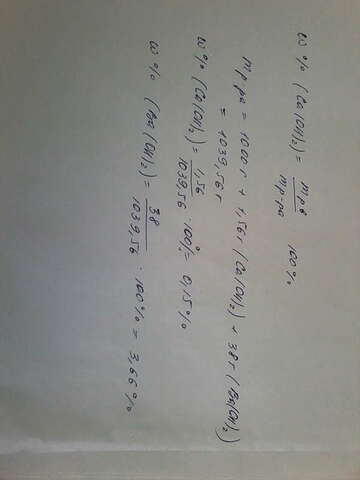 w % (Ca(OH)₂) = m p.в / m p-ра 100%
m p-ра = 1000 г + 1,56 г (Ca(OH)₂) + 38 г (Ba(OH)₂)
= 1039,56 г
w % (Ca(OH)₂) = 1,56 / 1039,56 · 100% = 0,15%
w % (Ba(OH)₂) = 38 / 1039,56 · 100% = 3,66%